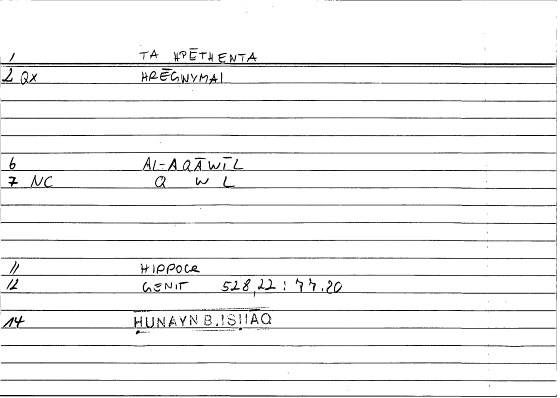 1 TA HRĒTHENTA
2 QX HRĒGNYMAI
6 Al-AQĀWĪL
7 NC Q W L
11 HIPPOCR
12 GENIT 528,22 : 77.20
14 ḤUNAYN B.ISḤĀQ